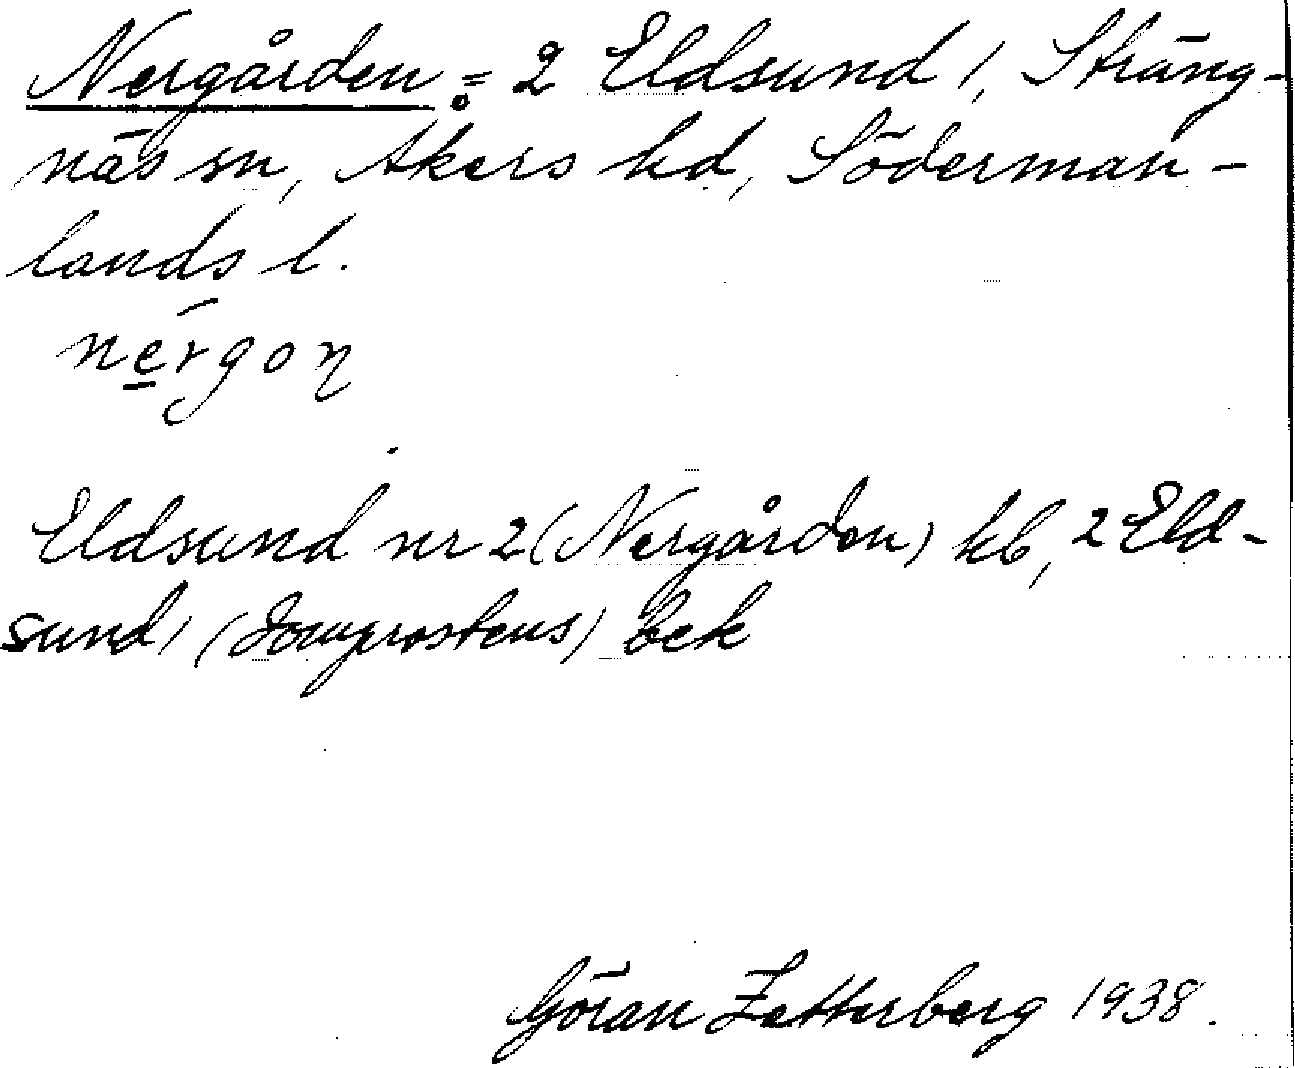 Nergården = 2 Eldsund 1, Sträng-
näs sn, Åkers hd, Söderman-
lands l.
nérgoη
Eldsund nr 2 (Nergården) kb, 2 Eld-
sund 1 (Domprostens) bek
Göran Zetterberg 1938.